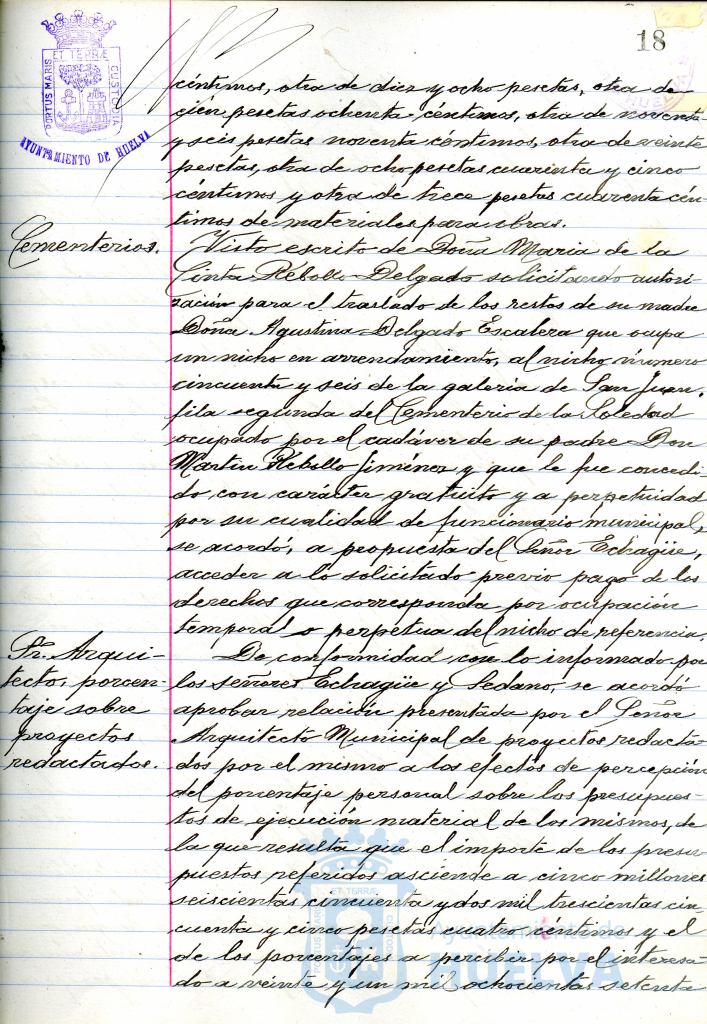 18
PORTUS MARIS ET TERRÆ CUSTODIA
AYUNTAMIENTO DE HUELVA
céntimos, otra de diez y ocho pesetas, otra de
cién pesetas ochenta céntimos, otra de noventa
y seis pesetas noventa céntimos, otra de veinte
pesetas, otra de ocho pesetas cuarenta y cinco
céntimos y otra de trece pesetas cuarenta cén-
timos de materiales para obras.
Cementerios.
Visto escrito de Doña Maria de la
Cinta Rebollo Delgado solicitando autori-
zación para el traslado de los restos de su madre
Doña Agustina Delgado Escalera que ocupa
un nicho en arrendamiento, al nicho número
cincuenta y seis de la galeria de San Juan,
fila segunda del Cementerio de la Soledad
ocupado por el cadáver de su padre Don
Martin Rebollo Jiménez y que le fue concedi-
do con carácter gratuito y a perpetuidad
por su cualidad de funcionario municipal,
se acordó, a propuesta del Señor Echagüe,
acceder a lo solicitado previo pago de los
derechos que corresponda por ocupación
temporal o perpetua del nicho de referencia.
Sr. Arqui-
tecto, porcen-
taje sobre
proyectos
redactados.
De conformidad con lo informado por
los señores Echagüe y Sedano, se acordó
aprobar relación presentada por el Señor
Arquitecto Municipal de proyectos redacta-
dos por el mismo a los efectos de percepción
del porcentaje personal sobre los presupues-
tos de ejecución material de los mismos, de
la que resulta que el importe de los presu-
puestos referidos asciende a cinco millones
seiscientas cincuenta y dos mil trescientas cin-
cuenta y cinco pesetas cuatro céntimos y el
de los porcentajes a percibir por el interesa-
do a veinte y un mil ochocientas setenta
Ayuntamiento de
HUELVA